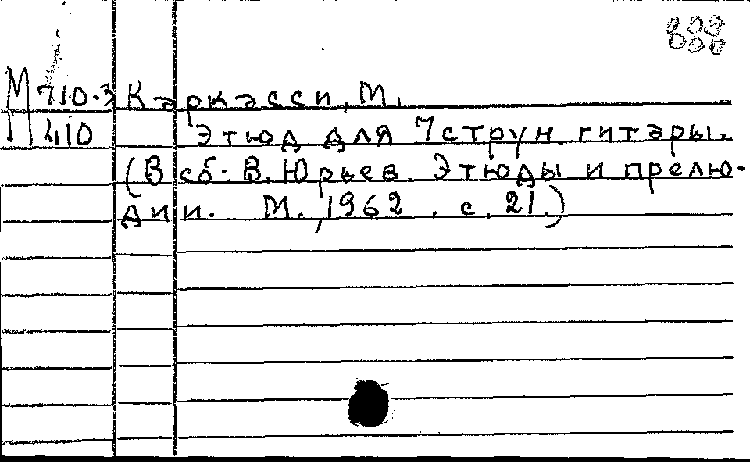 М 710-3 Каркасси, М.
410 Этюд для 7струн. гитары.
(В сб. В. Юрьев. Этюды и прелю-
дии. М., 1962. с. 21.)